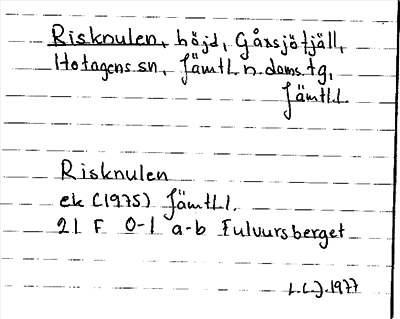 Risknulen, höjd, Gåxsjöfjäll,
Hotagens sn, Jämtl. n. doms. tg,
Jämtl.l.
Risknulen
ek (1975) Jämtl.l.
21 F 0-1 a-b Fulvursberget
L.L.J. 1977